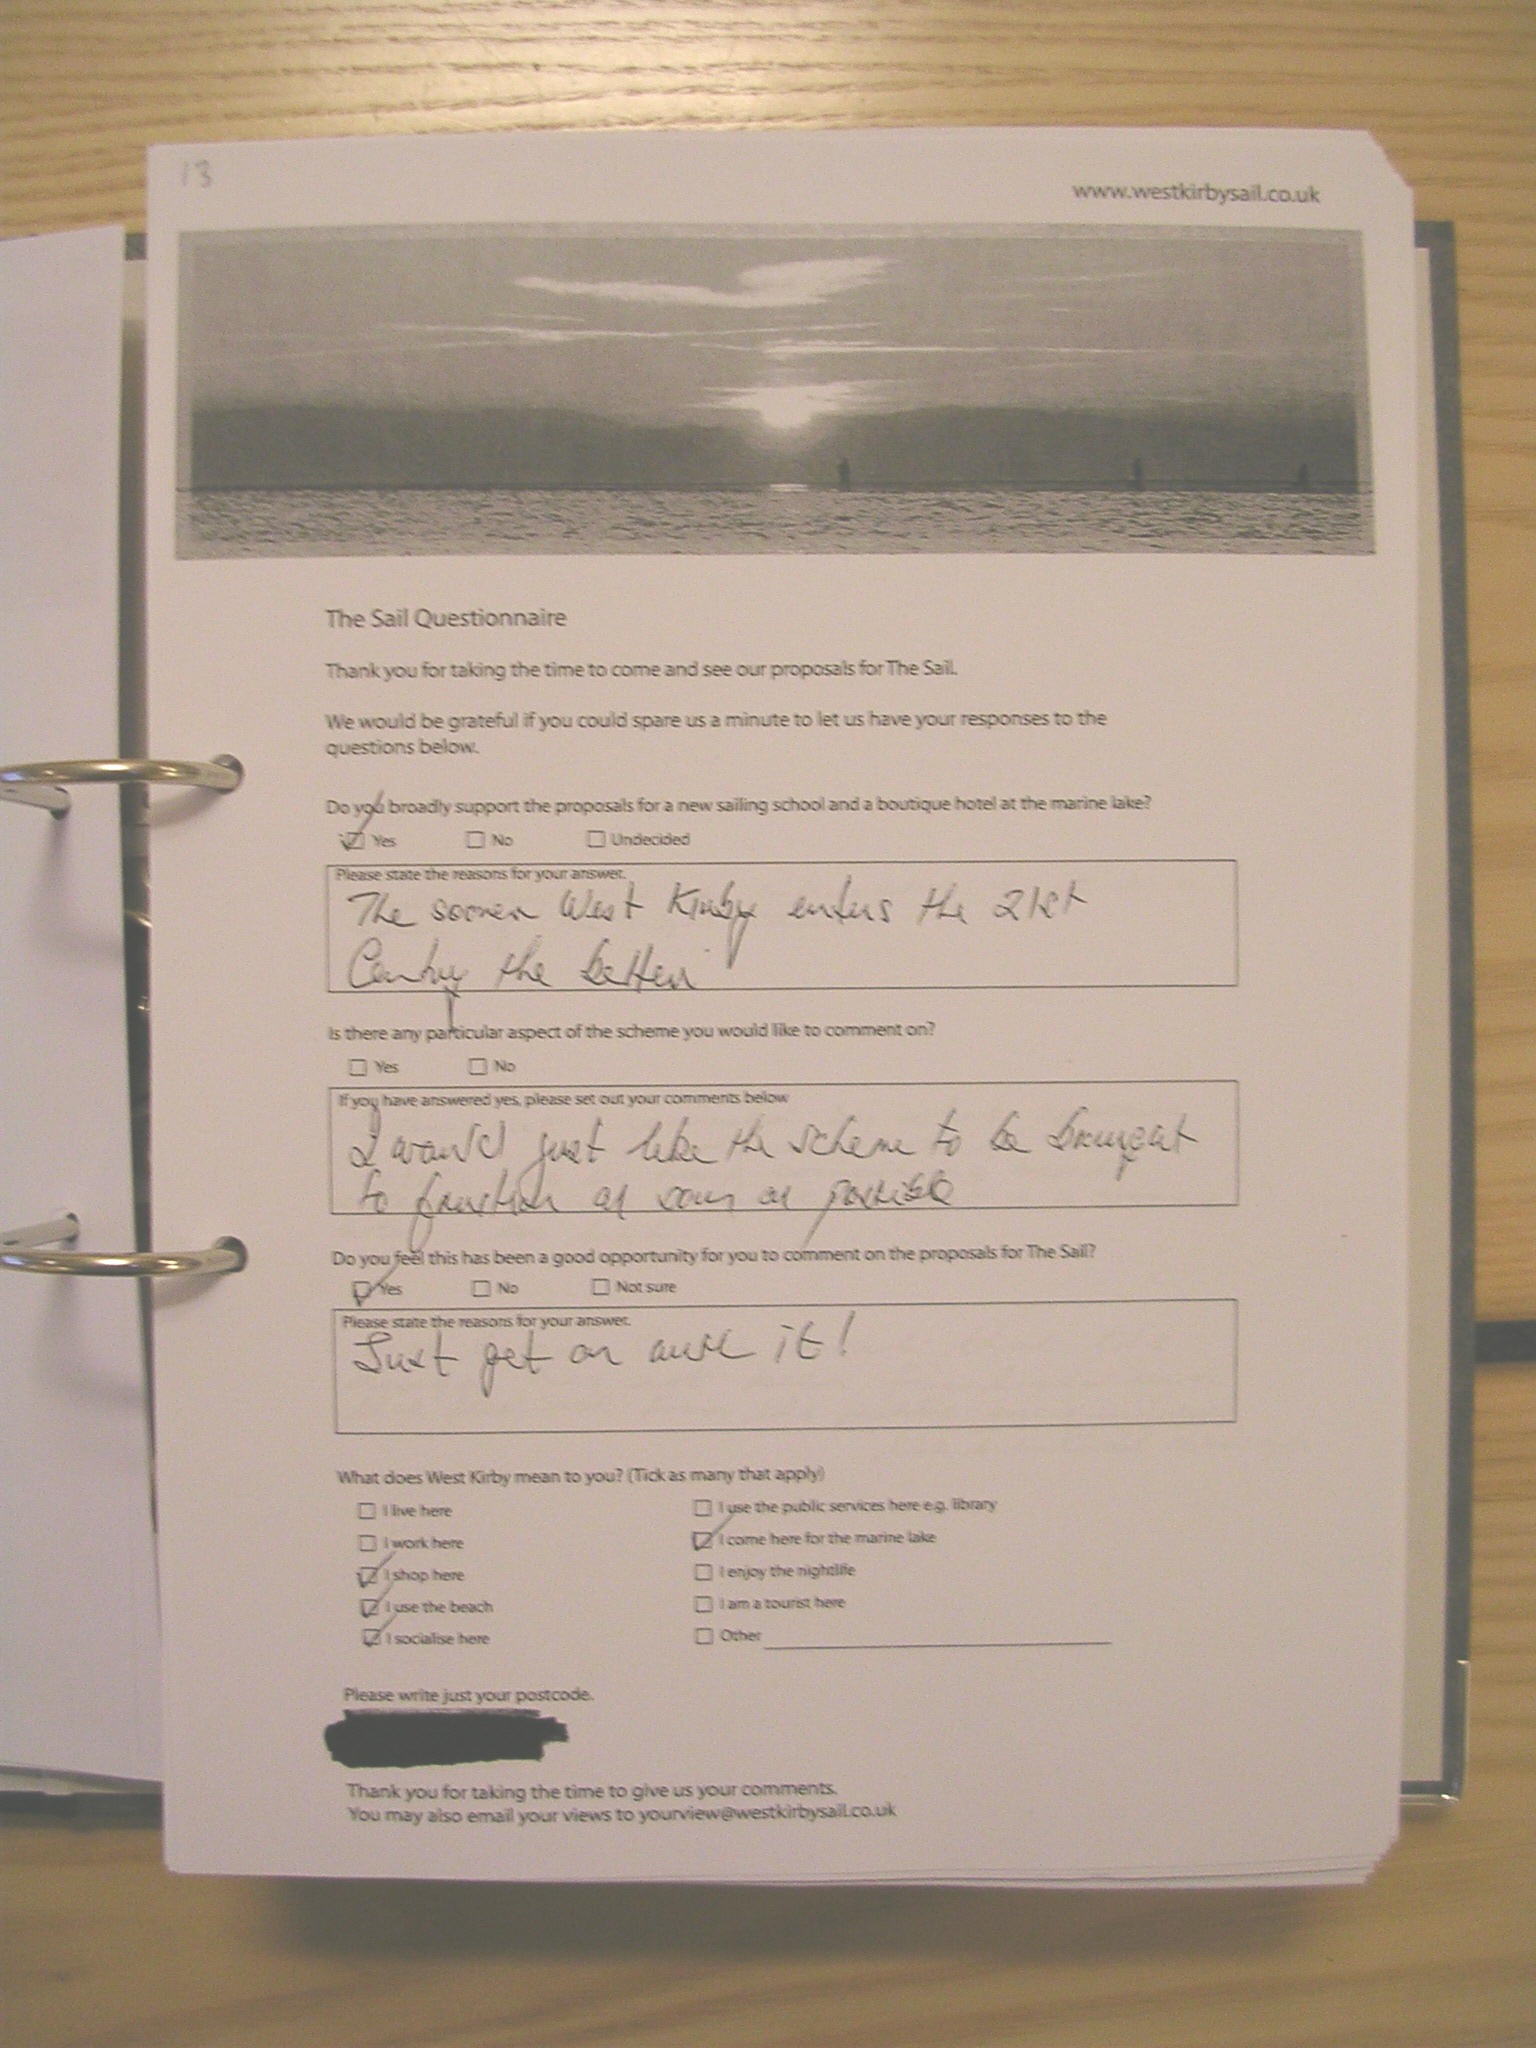 13
www.westkirbysail.co.uk
The Sail Questionnaire
Thank you for taking the time to come and see our proposals for The Sail.
We would be grateful if you could spare us a minute to let us have your responses to the
questions below.
Do you broadly support the proposals for a new sailing school and a boutique hotel at the marine lake?
Yes No Undecided
Please state the reasons for your answer.
The sooner West Kirby enters the 21st
Century the better
Is there any particular aspect of the scheme you would like to comment on?
Yes No
If you have answered yes, please set out your comments below
I would just like the scheme to be brought
to fruition as soon as possible
Do you feel this has been a good opportunity for you to comment on the proposals for The Sail?
Yes No Not sure
Please state the reasons for your answer.
Just get on with it!
What does West Kirby mean to you? (Tick as many that apply)
I live here I use the public services here e.g. library
I work here I come here for the marine lake
I shop here I enjoy the nightlife
I use the beach I am a tourist here
I socialise here Other
Please write just your postcode.
Thank you for taking the time to give us your comments.
You may also email your views to yourview@westkirbysail.co.uk